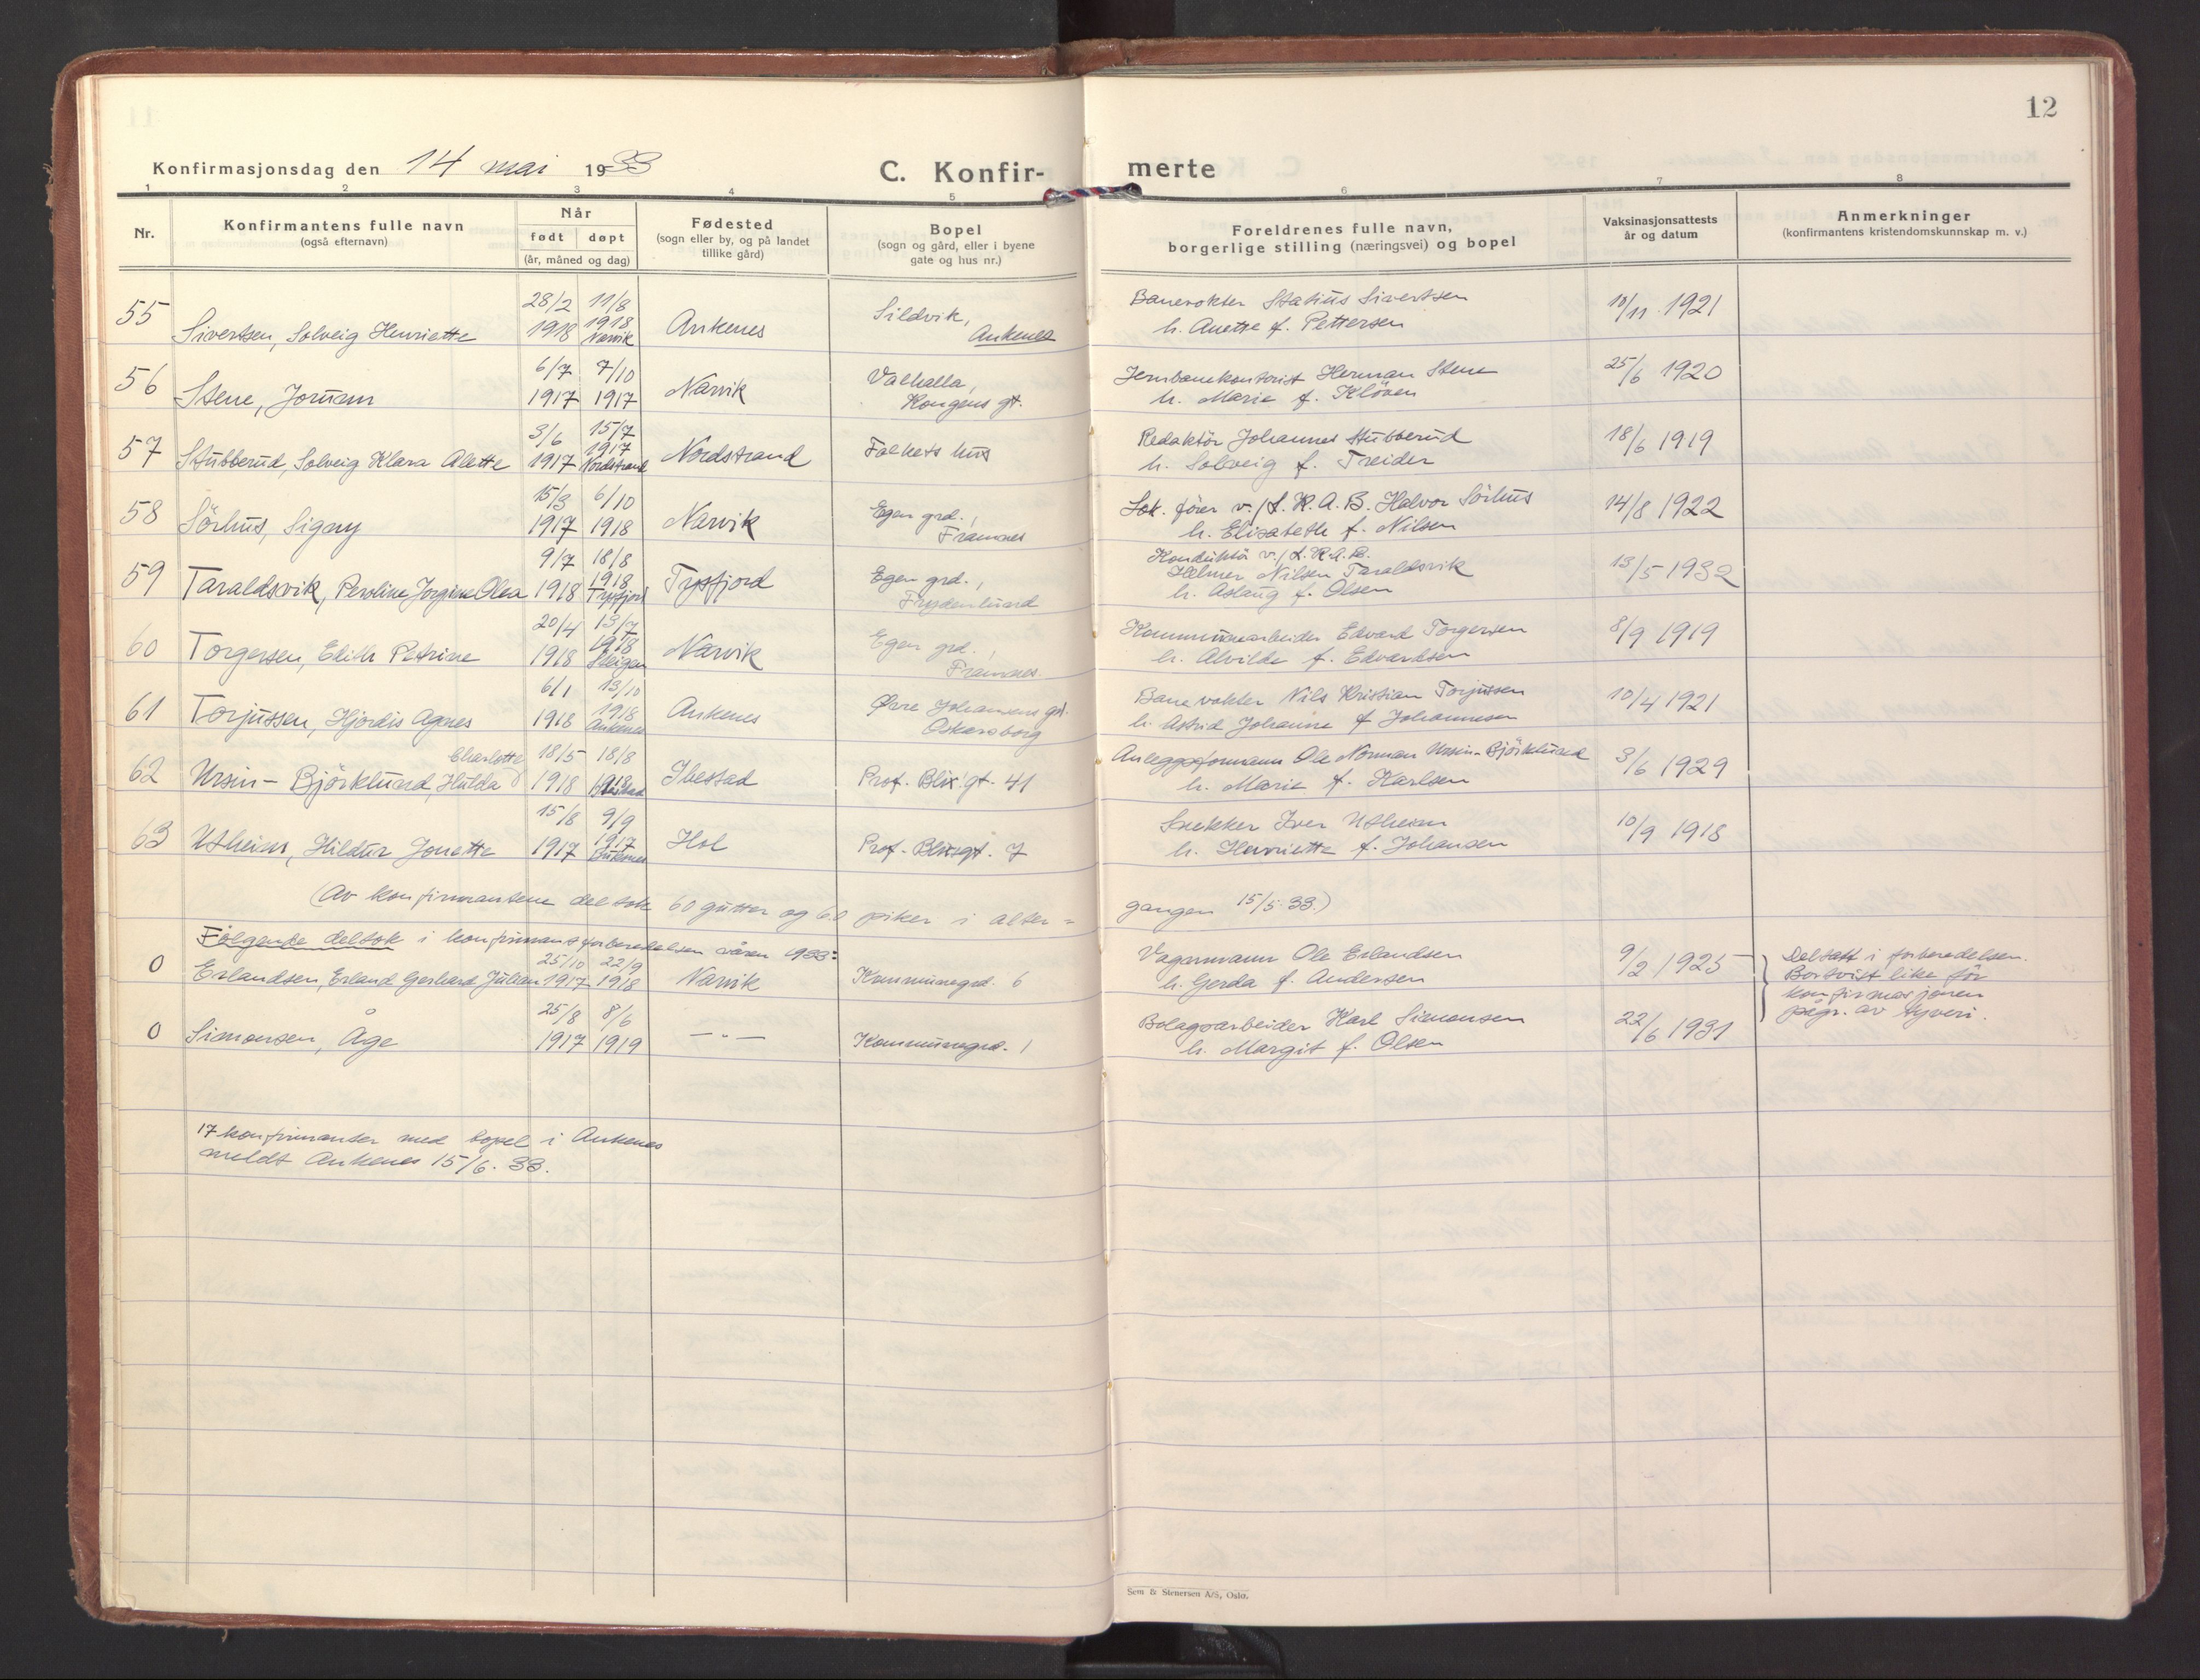 12
Konfirmasjonsdag den 14 mai 1933 C. Konfir- merte
1 2 3 4 5 6 7 8
Nr.
Konfirmantens fulle navn
(også efternavn)
Når
født døpt
(år, måned og dag)
Fødested
(sogn eller by, og på landet
tillike gård)
Bopel
(sogn og gård, eller i byene
gate og hus nr.)
Foreldrenes fulle navn,
borgerlige stilling (næringsvei) og bopel
Vaksinasjonsattests
år og datum
Anmerkninger
(konfirmantens kristendomskunnskap m. v.)
55 28/2 11/8 Sildvik, Banevokter Statius Sivertsen 10/11 1921
Sivertsen, Solveig Henriette 1918 1918 Ankenes Ankenes h. Anette f. Pettersen
Narvik
56 6/7 7/10 Valhalla, Jernbanekontorist Herman Stene 25/6 1920
Stene, Jorunn 1917 1917 Narvik Kongens gt. h. Marie f. Kløven
57 3/6 15/7 Folkets hus Redaktör Johannes Stubberud 18/6 1919
Stubberud, Solveig Klara Alette 1917 1917 Nordstrand h. Solveig f. Treider
Nordstrand
58 15/3 6/10 Egen grd., Lok. fører v./L.K.A.B. Halvor Sörhus 14/8 1922
Sörhus, Signy 1917 1918 Narvik Framnes h. Elisabeth f. Nilsen
59 9/7 18/8 Egen grd., Konduktör v./L.K.A.B.
Taraldsvik, Peroline Jorgine Olea 1918 1918 Tysfjord Frydenlund Helmer Nilsen Taraldsvik 13/5 1932
Tysfjord h. Aslaug f. Olsen
60 20/4 13/7 Egen grd., Kommunearbeider Edvard Torgersen 8/9 1919
Torgersen, Edith Petrine 1918 1918 Narvik Framnes. h. Alvilde f. Edvardsen
Steigen
61 6/1 13/10 Øvre Johansens grd. Banevokter Nils Kristian Torjussen 10/4 1921
Torjussen, Hjordis Agnes 1918 1918 Ankenes Oskarsborg h. Astrid Johanne f Johannesen
Ankenes
62 Charlotte 18/5 18/8 Anleggsformann Ole Norman Ursin-Björklund 3/6 1929
Ursin-Björklund, Hulda 1918 1918 Ibestad Prof. Blix gt. 41 h. Marie f. Karlsen
63 15/8 9/9 Snekker Iver Utheim 10/9 1918
Utheim, Hildur Jonette 1917 1917 Hol Prof. Blixgt. 7 h. Henriette f. Johansen
Buksnes
(Av konfirmantene deltok 60 gutter og 60 piker i alter=
gangen 15/5.33.)
Fölgende deltok i konfirmantforberedelsen våren 1933:
0 25/10 22/9 Vognmann Ole Erlandsen 9/2 1925
Erlandsen, Erland Gerhard Julian 1917 1918 Narvik Kommunegrd. 6 h. Gerda f. Andersen
0 25/8 8/6 Bolagsarbeider Karl Simonsen 22/6 1931
Simonsen, Åge 1917 1919 —"— Kommunegrd. 1 h. Margit f. Olsen
Deltatt i forberedelsen.
Bortvist like för
konfirmasjonen
pågr. av tyveri.
17 konfirmanter med bopel i Ankenes
meldt Ankenes 15/6.33.
Sem & Stenersen A/S, Oslo.